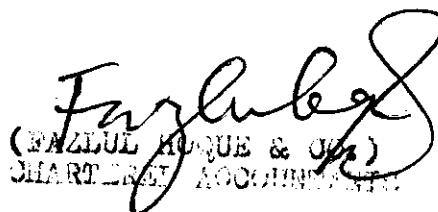 (FAZLUL HOQUE & CO.)
CHARTERED ACCOUNTANTS